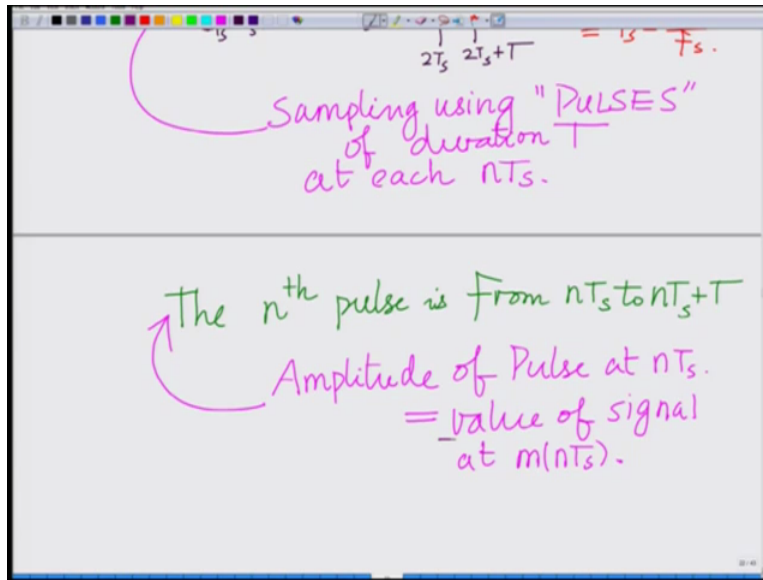 2Ts 2Ts+T
Sampling using "PULSES"
of duration T
at each nTs.
The nth pulse is from nTs to nTs+T
Amplitude of Pulse at nTs.
= value of signal
at m(nTs).